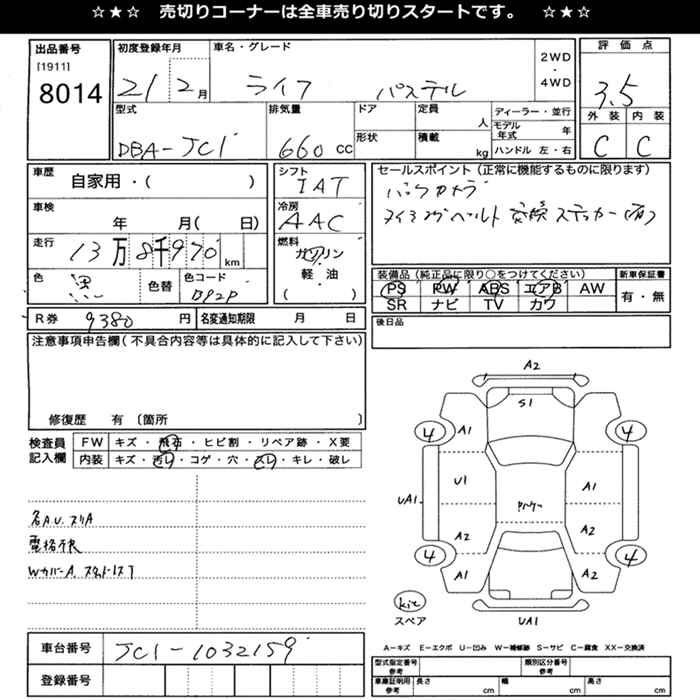 ☆★☆ 売切りコーナーは全車売り切りスタートです。 ☆★☆
出品番号
[1911]
8014
初度登録年月
21 2月
車名・グレード
ライフ パステル
2WD
・
4WD
評価点
3.5
外装 内装
C C
型式
DBA-JC1
排気量
660 cc
ドア
形状
定員
人
積載
kg
ディーラー・並行
モデル年式 年
ハンドル 左・右
車歴
自家用・( )
車検
年 月( 日)
走行
13万8千970km
色
黒
色替
色コード
B92P
シフト
IAT
冷房
AAC
燃料
ガソリン
・
軽油
( )
セールスポイント(正常に機能するものに限ります)
バックカメラ
タイミングベルト交換ステッカー(有)
装備品(純正品に限り○をつけてください)
PS PW ABS エアB AW
SR ナビ TV カワ
新車保証書
有・無
R券 9380円
名変通知期限 月 日
後日品
注意事項申告欄(不具合内容等は具体的に記入して下さい)
修復歴 有〔箇所 〕
検査員
記入欄
FW キズ・飛石・ヒビ割・リペア跡・X要
内装 キズ・汚レ・コゲ・穴・スレ・キレ・破レ
各AU.スリA
電格不良
WカバーA.
A2
S1
4 A1 4
U1 A1
UA1
A2 A2
4 A1 A2 4
kit
スペア
UA1
A-キズ E-エクボ U-凹み W-補修跡 S-サビ C-腐食 XX-交換済
車台番号
JC1-1032159
登録番号
型式指定番号
参考
類別区分番号
参考
車庫証明用
参考
長さ cm
幅 cm
高さ cm